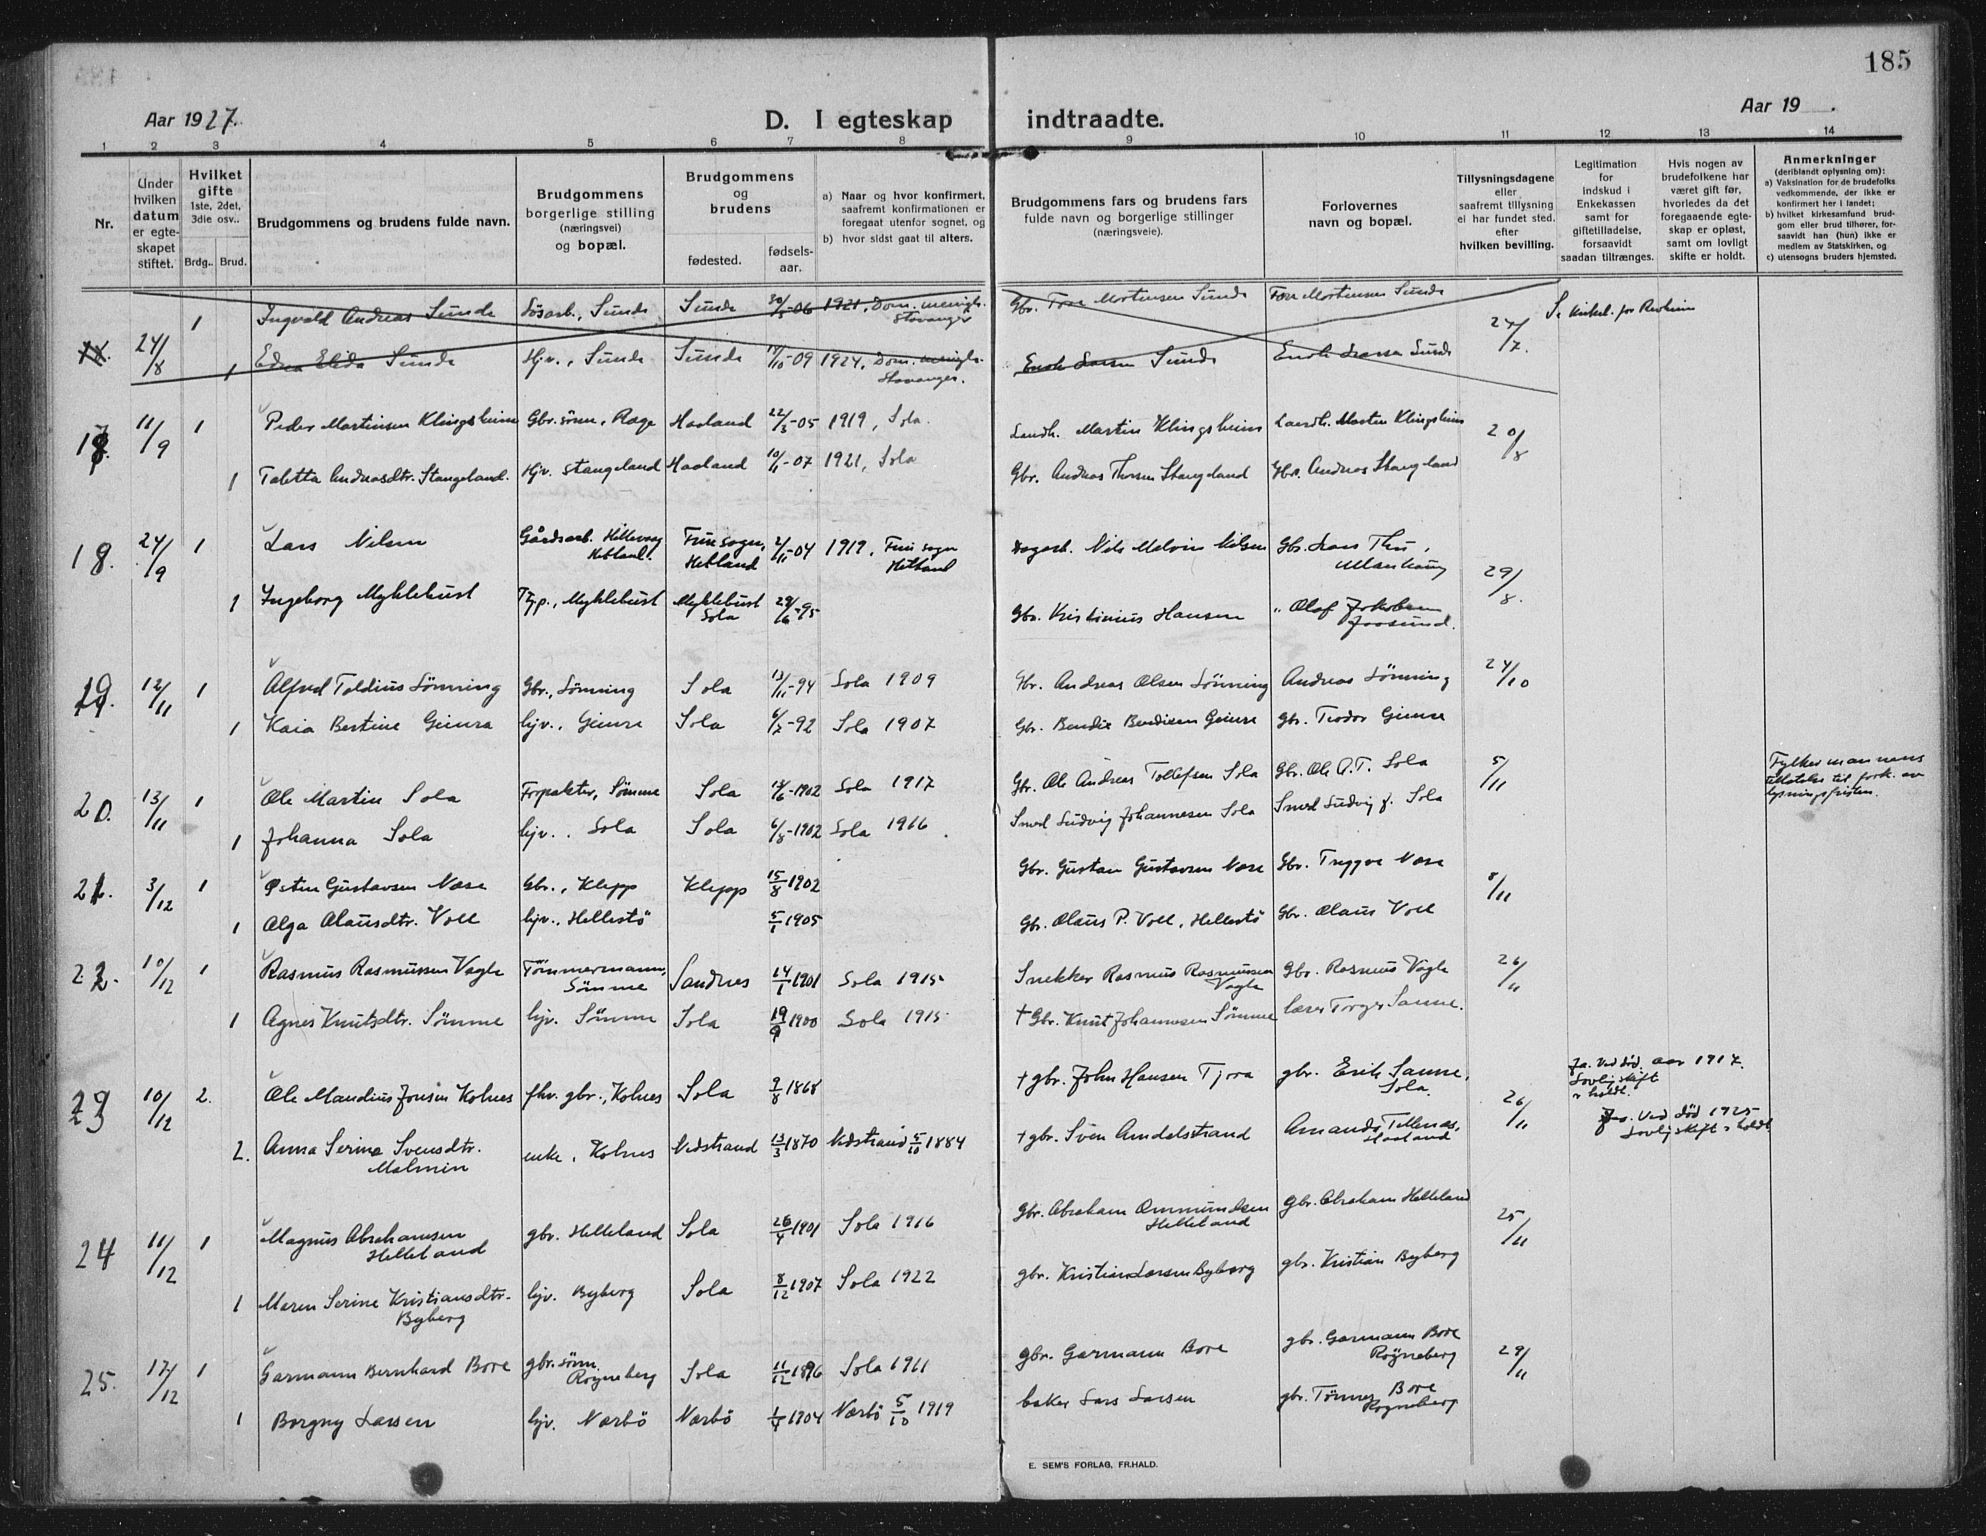 185
Aar 1927. D. I egteskap indtraadte. Aar 19 .
1 2 3 4 5 6 7 8 9 10 11 12 13 14
Nr.
Under hvilken datum er egteskapet stiftet.
Hvilket gifte 1ste, 2det, 3die osv..
Brdg.. Brud.
Brudgommens og brudens fulde navn.
Brudgommens borgerlige stilling (næringsvei) og bopæl.
Brudgommens og brudens
fødested. fødsels-aar.
a) Naar og hvor konfirmert, saafremt konfirmationen er foregaat utenfor sognet, og
b) hvor sidst gaat til alters.
Brudgommens fars og brudens fars fulde navn og borgerlige stillinger (næringsveie).
Forlovernes navn og bopæl.
Tillysningsdagene eller saafremt tillysning ei har fundet sted. efter hvilken bevilling.
Legitimation for indskud i Enkekassen samt for giftetilladelse, forsaavidt saadan tiltrænges.
Hvis nogen av brudefolkene har været gift før, hvorledes da det foregaaende egteskap er opløst, samt om lovligt skifte er holdt.
Anmerkninger (deriblandt oplysning om):
a) Vaksination for de brudefolks vedkommende, der ikke er konfirmert her i landet;
b) hvilket kirkesamfund brudgom eller brud tilhører, forsaavidt han (hun) ikke er medlem av Statskirken, og
c) utensogns bruders hjemsted.
24/8 1 Ingvald Andreas Sunde Sunde Sunde 30/5-06 1921, Dom. menigh. Stavanger Gbr. Tore Mortensen Sunde Tore Mortensen Sunde 24/7.
1 Edna Elida Sunde Hjv., Sunde Sunde 14/10-09 1924, Dom. menigh. Stavanger. Enok Larsen Sunde Enok Larsen Sunde
17 11/9 1 Peder Martinsen Klingsheim Gbr. sønn, Ræge Haaland 22/3-05 1919, Sola. Landh. Martin Klingsheim Landh. Morten Klingsheim 20/8
1 Taletta Andreasdtr. Stangeland. Hjv. Stangeland Haaland 10/11-07 1921, Sola Gbr. Andreas Thorsen Stangeland Gbr. Andreas Stangeland
18. 24/9 1 Lars Nilsen Gårdsarb. Hillevåg Hetland. Frue sogn, Hetland 2/11-04 1919, Frue sogn Hetland Dagarb. Nils Melvin Nilsen Gbr. Lars 29/8.
1 Ingeborg Myklebust Tjp., Myklebust Myklebust Sola 29/6-95 Gbr. Kristinius Hansen " Olaf Jakobsen Joasund.
19. 12/11 1 Alfred Toldius Sömning Gbr., Sömning Sola 13/11-94 Sola 1909 Gbr. Andreas Olsen Sömning Andreas Sömning 24/10
1 Kaia Bertine Gimra hjv., Gimre Sola 6/7-92 Sola 1907 Gbr. Bendix Bendixen Gimre Gbr. Teodor Gimre
20. 13/11 1 Ole Martin Sola Forpakter, Sömme Sola 18/6-1902 Sola 1917 Gbr. Ole Andreas Tollefsen Sola Gbr. Ole A.T. Sola 5/11 Fylkesmannens tillatelse til fork. av lysningsfristen.
1 Johanna Sola hjv. . Sola Sola 6/8-1902 Sola 1916 . Smed Ludvig Johannesen Sola Smed Ludvig J. Sola
21. 3/12 1 Östen Gustavsen Næse Gbr., Klepp Klepp 15/8 1902 Gbr. Gustav Gustavsen Næse Gbr. Trygve Næse 8/11
1 Olga Olausdtr. Voll hjv., Hellestö 5/1 1905 Gbr. Olaus P. Voll, Hellestö Gbr. Olaus Voll
22. 10/12 1 Rasmus Rasmussen Vagle Tömmermann, Sömme Sandnes 14/1 1901 Sola 1915 Snekker Rasmus Rasmussen Vagle Gbr. Rasmus Vagle 26/11
1 Agnes Knutsdtr. Sömme hjv. Sömme Sola 19/9 1900 Sola 1915 † Gbr. Knut Johannesen Sömme lærer Torger Sanne.
23 10/12 2. Ole Mandius Jonsen Kolnes fhv. gbr., Kolnes Sola 3/8 1868 † gbr. John Hansen Tjora gbr. Erik Sanne, Sola. 26/11 Ja. Ved död. aar 1917. Lovlig skift r holdt.
2. Anna Serina Svensdtr. Malmin enke, Kolnes Nedstrand 13/3 1870 Nedstrand 5/10 1884 † gbr. Sven Amdalstrand Amanda Tellenas, Haaland Ja. Ved död 1925 Lovlig skift r holdt
24 11/12 1 Magnus Abrahamsen Helleland gbr. Helleland Sola 26/4 1901 Sola 1916 Gbr. Abraham Ommundsen Helleland gbr. Abraham Helleland 25/11
1 Maren Serine Kristiansdtr. Byberg hjv. Byberg Sola 8/12 1907 Sola 1922 gbr. Kristian Larsen Byberg gbr. Kristian Byberg
25. 17/12 1 Garmann Bernhard Bore gbr. sönn. Röyneberg Sola 11/12 1896 Sola 1911 gbr. Garmann Bore gbr. Garmann Bore Röyneberg 29/11
1 Borgny Larsen hjv. Nærbö Nærbö 1/4 1904 Nærbö 5/10 1919 baker Lars Larsen gbr. Tönnes Bore Röyneberg
E. SEM'S FORLAG, FR.HALD.